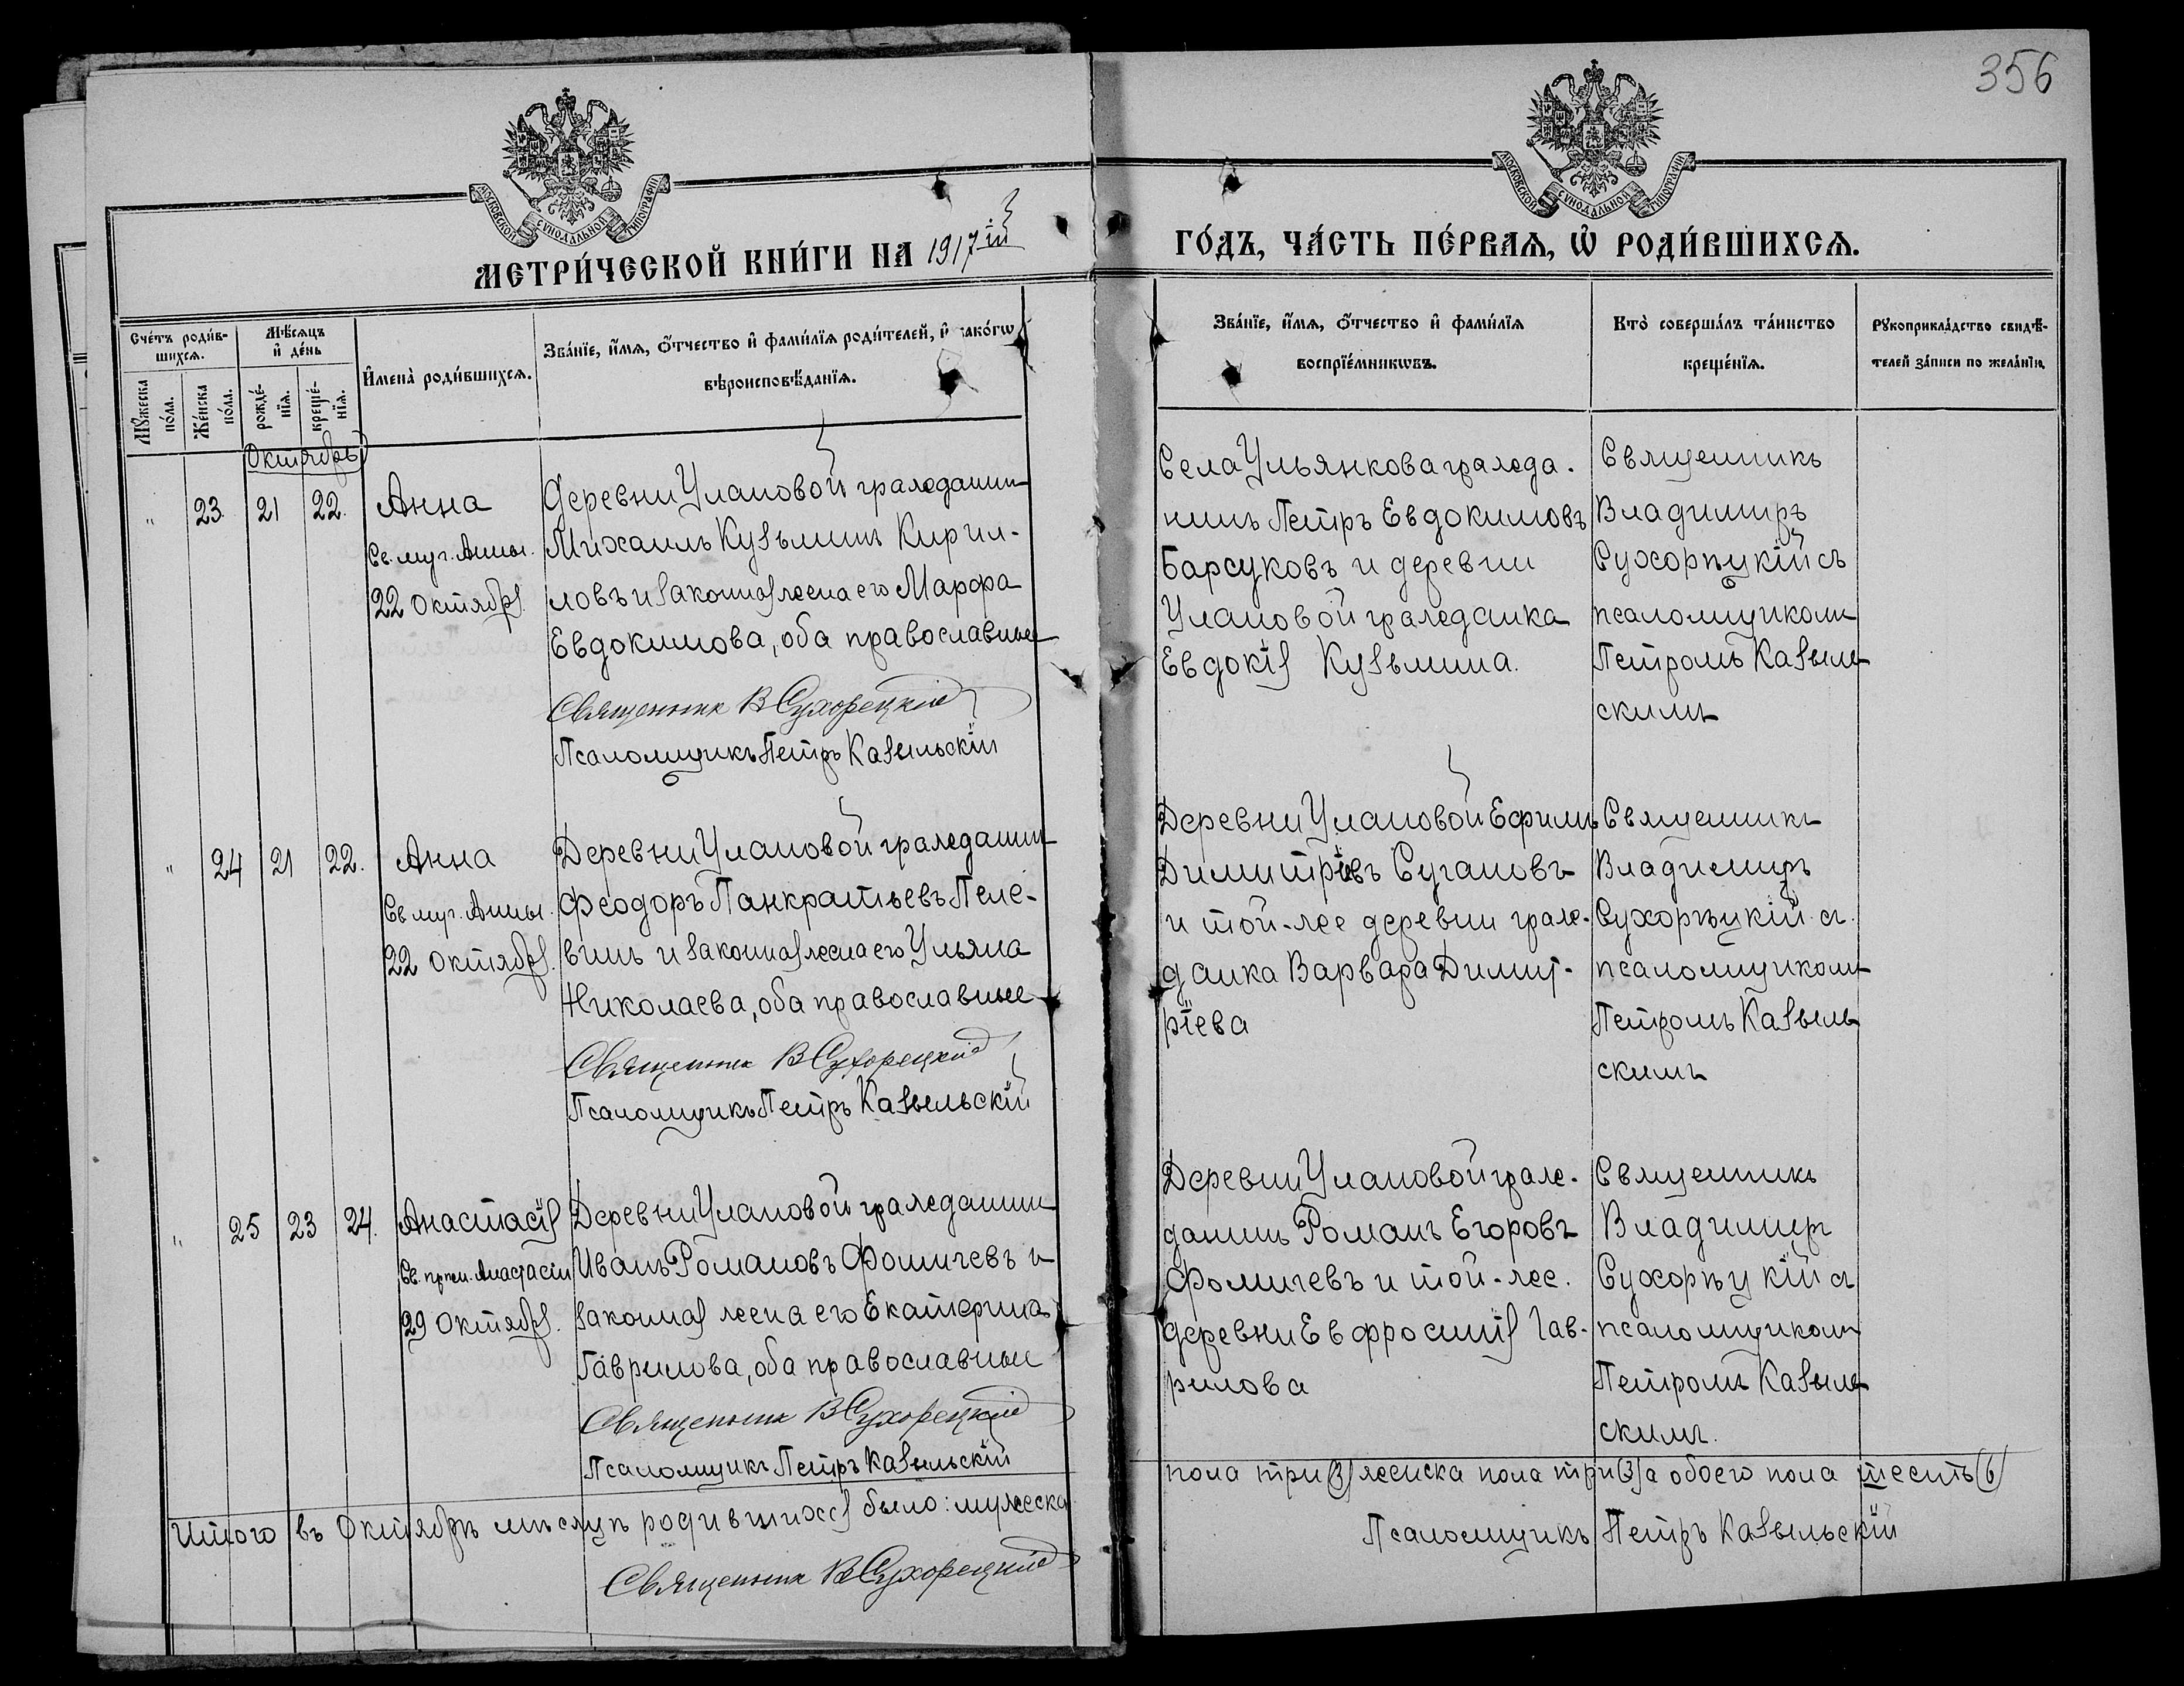 356
МОСКОВСКОЙ СУНОДАЛЬНОЙ ТИПОГРАФІИ
МОСКОВСКОЙ СУНОДАЛЬНОЙ ТИПОГРАФІИ
МЕТРИ́ЧЕСКОЙ КНИ́ГИ НА 1917 ій
ГО́ДЪ, ЧА́СТЬ ПЕ́РВАЯ, Ѡ҆ РОДИ́ВШИХСЯ.
Сче́тъ роди́в-
шихся.
Мꙋ́жеска по́ла.
Же́нска по́ла.
Мѣ́сяцъ
и҆ де́нь
рожде́-
нїя.
креще́-
нїя.
И҆мена̀ роди́вшихся.
Зва́нїе, и҆́мя, ѻ҆́тчество и҆ фами́лїя роди́телей, и҆ како́гѡ
вѣроисповѣ́данїя.
Зва́нїе, и҆́мя, ѻ҆́тчество и҆ фами́лїя
воспрїе́мникѡвъ.
Кто̀ соверша́лъ та́инство
креще́нїя.
Рꙋкоприкла́дство свидѣ́-
телей за́писи по жела́нїю.
Октябрь
" 23. 21 22.
Анна
Св. муч. Анны.
22 Октября
Деревни Улановой гражданин
Михаилъ Кузьминъ Кирил-
ловъ и законная жена его Марфа
Евдокимова, оба православные
Священник В Сухорецкій
Псаломщикъ Петръ Казыльскій
Села Ульянкова гражда-
нинъ Петръ Евдокимовъ
Барсуковъ и деревни
Улановой гражданка
Евдокія Кузьмина.
Священникъ
Владимиръ
Сухорѣцкій съ
псаломщикомъ
Петромъ Казыль
скимъ
" 24 21 22.
Анна
Св муч. Анны.
22 Октября.
Деревни Улановой гражданин
Феодоръ Панкратьевъ Пеле-
винъ и законная жена его Ульяна
Николаева, оба православные
Священник В Сухорецкій
Псаломщикъ Петръ Казыльскій
Деревни Улановой Ефимъ
Димитріевъ Сугановъ
и той-же деревни граж-
данка Варвара Димит-
ріева
Священникъ
Владимиръ
Сухорѣцкій съ
псаломщикомъ
Петромъ Казыль
скимъ
" 25 23 24.
Анастасія
Св. прпм. Анастасіи
29 Октября.
Деревни Улановой гражданин
Иванъ Романовъ Фомичевъ и
законная жена его Екатерина
Гаврилова, оба православные
Священник В Сухорецкій
Псаломщикъ Петръ Казыльскій
Деревни Улановой граж-
данинъ Романъ Егоровъ
Фомичевъ и той-же.
деревни Евфросинія Гав-
рилова
Священникъ
Владимиръ
Сухорѣцкій съ
псаломщикомъ
Петромъ Казыль
скимъ.
Итого въ Октябрѣ мѣсяцѣ родившихся было: мужеска
пола три (3) женска пола три (3) а обоего пола шесть (6)
Священник В Сухорецкій
Псаломщикъ Петръ Казыльскій